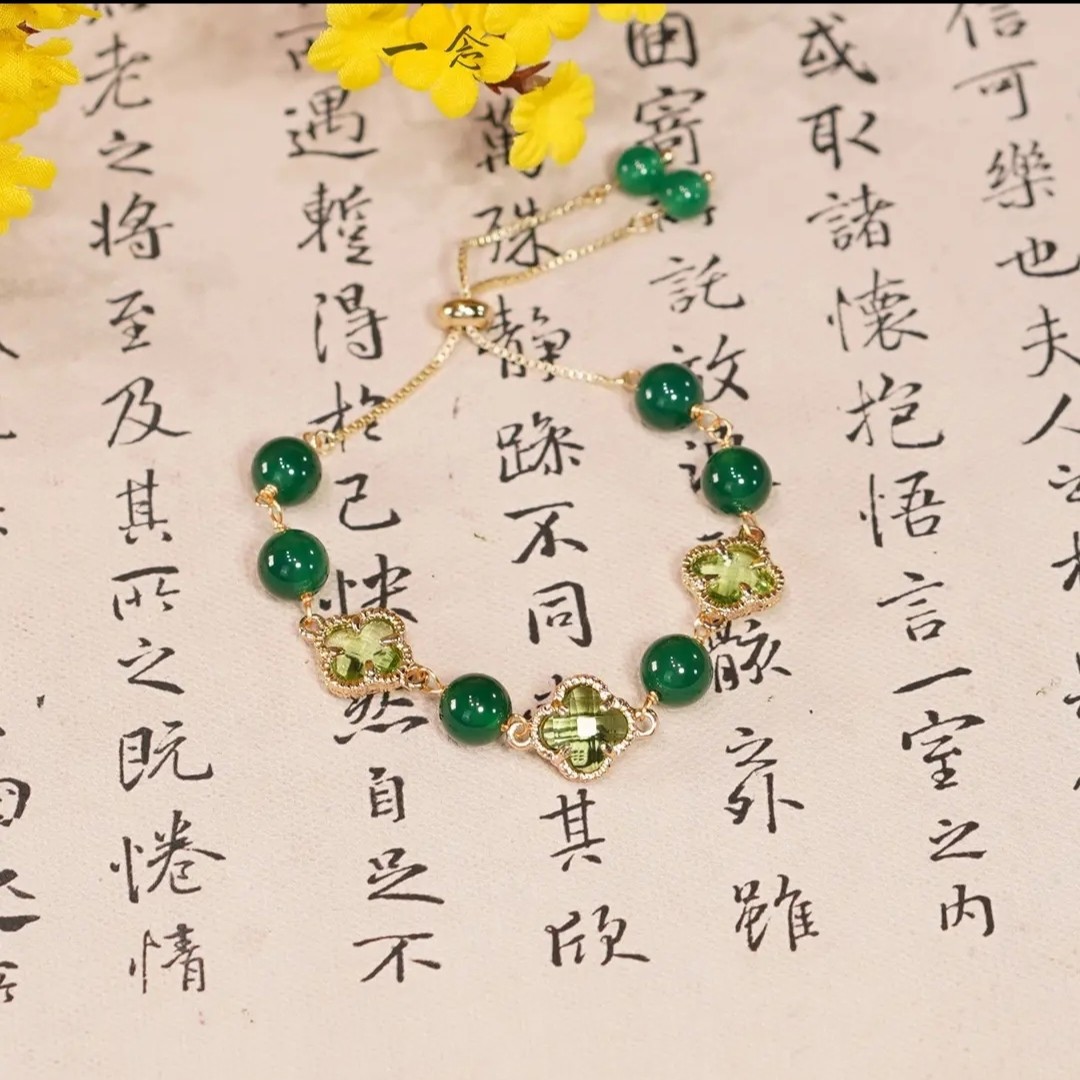 一念
信可樂也夫人之
或取諸懷抱悟言一室之内
因寄託放骸之外雖
萬殊静躁不同其欣
遇暫得於己怏然自足不
老之將至及其所之既惓情